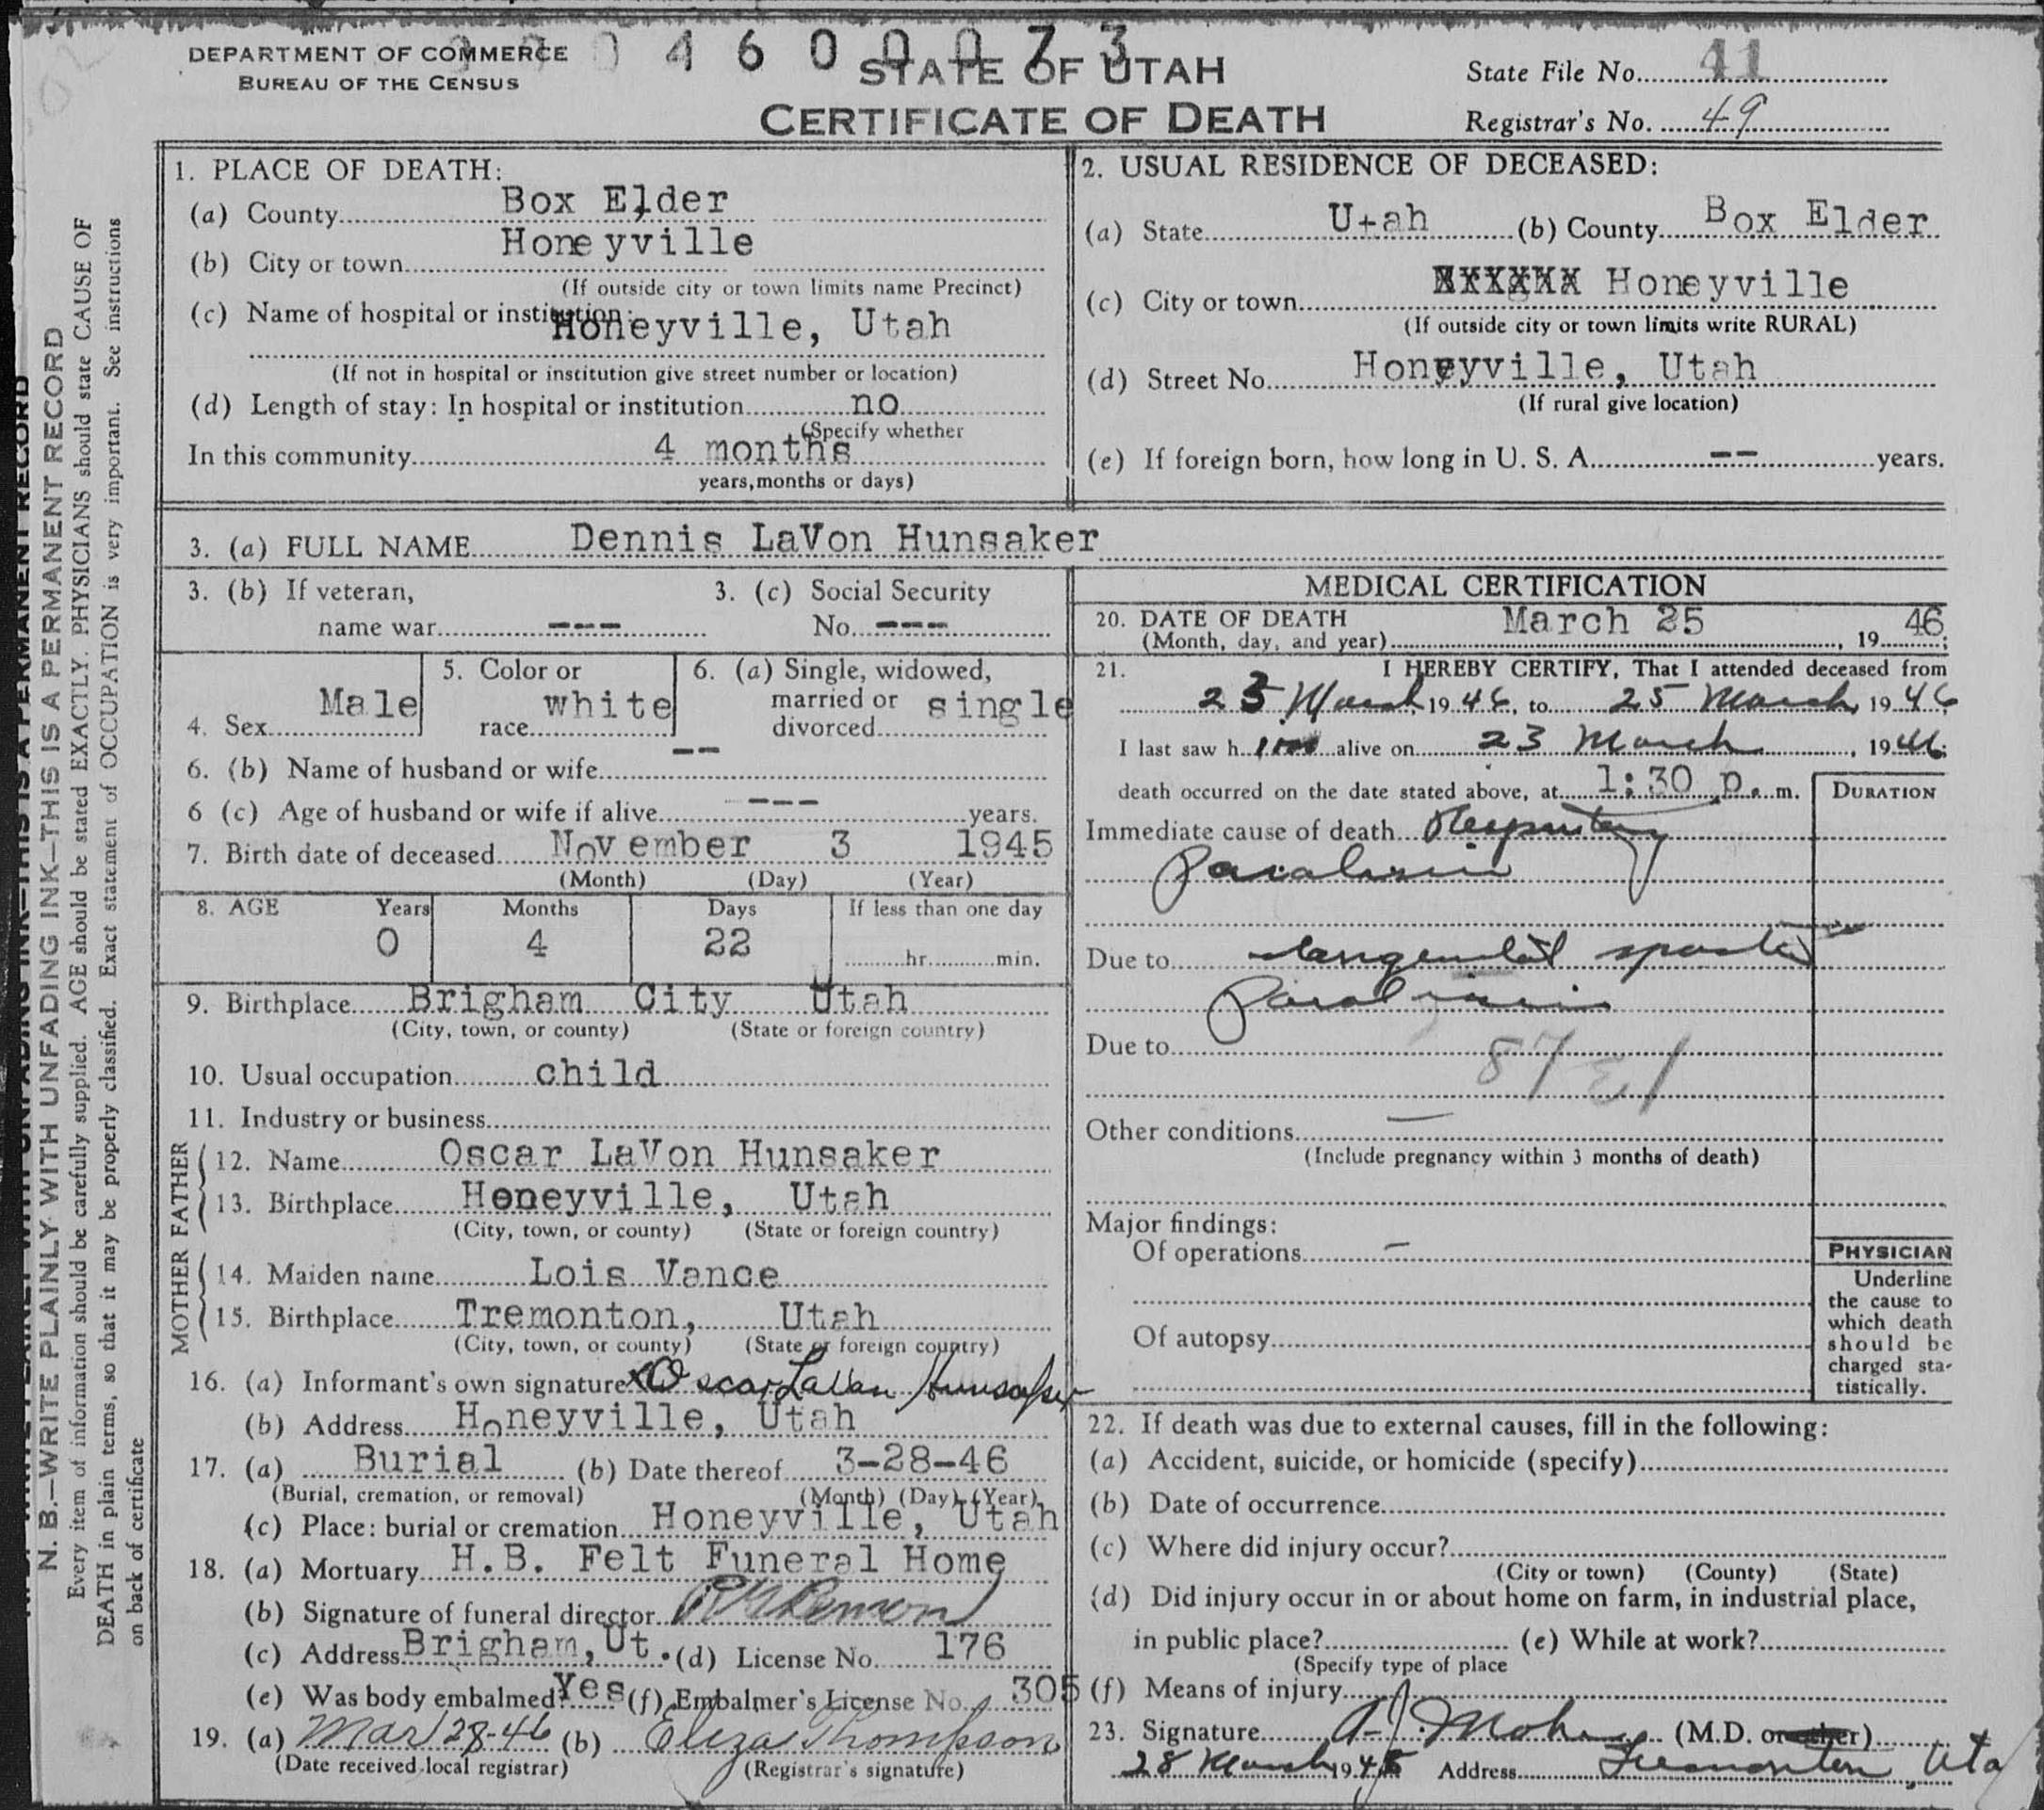 DEPARTMENT OF COMMERCE
BUREAU OF THE CENSUS
4600073
STATE OF UTAH
CERTIFICATE OF DEATH
State File No. 41
Registrar's No. 49
N. B.—WRITE PLAINLY WITH UNFADING INK—THIS IS A PERMANENT RECORD
Every item of information should be carefully supplied. AGE should be stated EXACTLY. PHYSICIANS should state CAUSE OF
DEATH in plain terms, so that it may be properly classified. Exact statement of OCCUPATION is very important. See instructions
on back of certificate
1. PLACE OF DEATH:
(a) County Box Elder
(b) City or town Honeyville
(If outside city or town limits name Precinct)
(c) Name of hospital or institution: Honeyville, Utah
(If not in hospital or institution give street number or location)
(d) Length of stay: In hospital or institution no
(Specify whether
In this community 4 months
years, months or days)
2. USUAL RESIDENCE OF DECEASED:
(a) State Utah (b) County Box Elder
(c) City or town Honeyville
(If outside city or town limits write RURAL)
(d) Street No. Honeyville, Utah
(If rural give location)
(e) If foreign born, how long in U. S. A. -- years.
3. (a) FULL NAME Dennis LaVon Hunsaker
3. (b) If veteran,
name war ---
3. (c) Social Security
No. ---
4. Sex Male
5. Color or
race white
6. (a) Single, widowed,
married or
divorced single
6. (b) Name of husband or wife --
6 (c) Age of husband or wife if alive --- years.
7. Birth date of deceased November 3 1945
(Month) (Day) (Year)
8. AGE Years Months Days If less than one day
0 4 22 hr. min.
9. Birthplace Brigham City Utah
(City, town, or county) (State or foreign country)
10. Usual occupation child
11. Industry or business
FATHER
12. Name Oscar LaVon Hunsaker
13. Birthplace Honeyville, Utah
(City, town, or county) (State or foreign country)
MOTHER
14. Maiden name Lois Vance
15. Birthplace Tremonton, Utah
(City, town, or county) (State or foreign country)
16. (a) Informant's own signature x Oscar LaVon Hunsaker
(b) Address Honeyville, Utah
17. (a) Burial (b) Date thereof 3-28-46
(Burial, cremation, or removal) (Month) (Day) (Year)
(c) Place: burial or cremation Honeyville, Utah
18. (a) Mortuary H.B. Felt Funeral Home
(b) Signature of funeral director
(c) Address Brigham, Ut. (d) License No. 176
(e) Was body embalmed? Yes (f) Embalmer's License No. 305
19. (a) Mar 28-46 (b) Eliza Thompson
(Date received local registrar) (Registrar's signature)
MEDICAL CERTIFICATION
20. DATE OF DEATH March 25
(Month, day, and year) , 19 46;
21. I HEREBY CERTIFY, That I attended deceased from
23 March 19 46, to 25 March, 19 46
I last saw h im alive on 23 March, 19 46;
death occurred on the date stated above, at 1:30 p. m.
DURATION
Immediate cause of death Respiratory
Paralysis
Due to Congenital spastic
Paralysis
Due to
87 E1
Other conditions —
(Include pregnancy within 3 months of death)
Major findings:
Of operations —
Of autopsy
PHYSICIAN
Underline
the cause to
which death
should be
charged sta-
tistically.
22. If death was due to external causes, fill in the following:
(a) Accident, suicide, or homicide (specify)
(b) Date of occurrence
(c) Where did injury occur?
(City or town) (County) (State)
(d) Did injury occur in or about home on farm, in industrial place,
in public place? (e) While at work?
(Specify type of place
(f) Means of injury
23. Signature (M.D. or other)
28 March 19 46 Address Tremonton, Uta